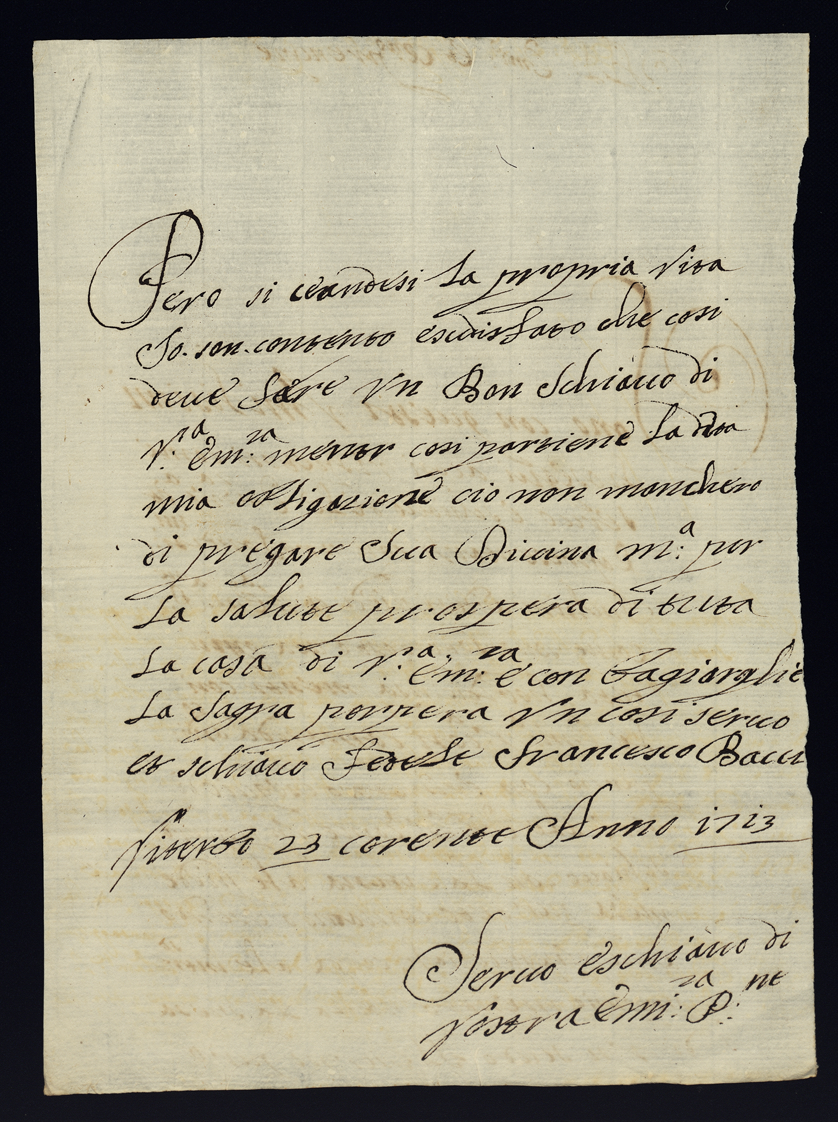 Pero si ceandesi la propria vita
Io. son. contento esodisfato che cosi
deue fare vn Bon Schiauo di
V.ra Em.za mentor cosi portiene la deta
mia obligazione cio non manchero
di pregare Sua Diuina M.a per
la salute prospera di tuta
la casa di V.ra Em.za e con
la sagra porpera vn cosi seruo
et schiauo Fedele Francesco Bacci
Viterbo 23 corente Anno 1713
Seruo eschiauo di
Vostra Emi.za P.ne